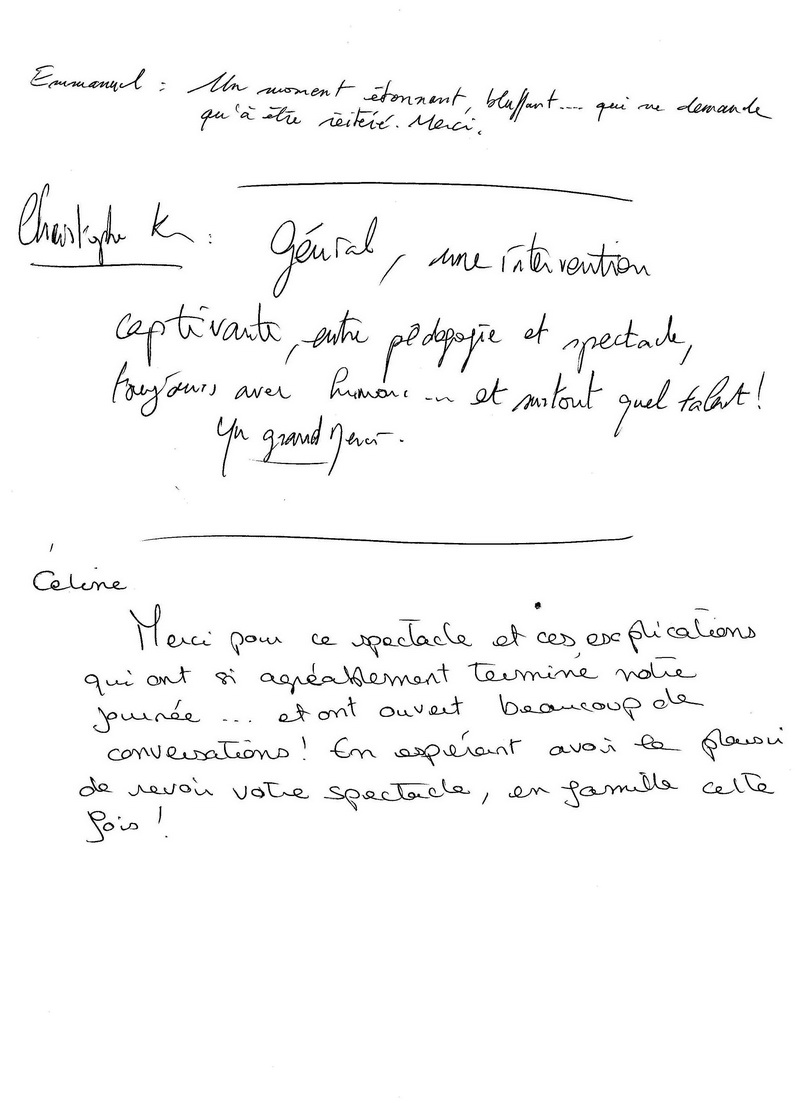 Emmanuel : Un moment étonnant, bluffant.... qui ne demande
qu'à être réitéré. Merci.
Christophe K :
Génial, une intervention
captivante, entre pédagogie et spectacle,
toujours avec humour ... et surtout quel talent !
Un grand Merci.
Céline
Merci pour ce spectacle et ces explications
qui ont si agréablement terminé notre
journée ... et ont ouvert beaucoup de
conversations ! En espérant avoir le plaisir
de revoir votre spectacle, en famille cette
fois !